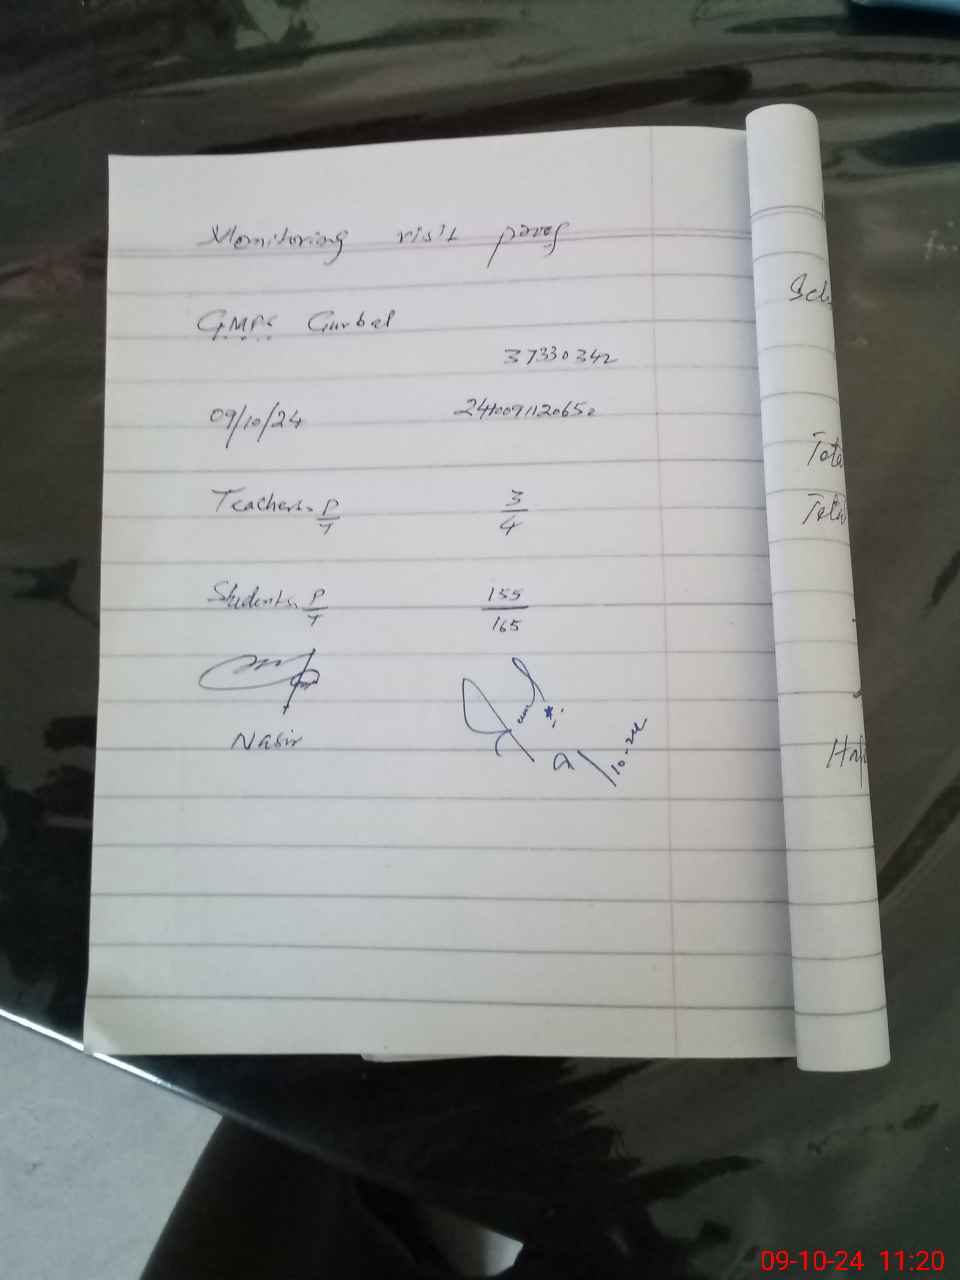 Monitoring visit proof
GMPS Gurbal
37330342
09/10/24
Teachers. P/T 3/4
Students. P/T 155/165
Nasir
9/10-24
Sch
Tota
Total
09-10-24 11:20